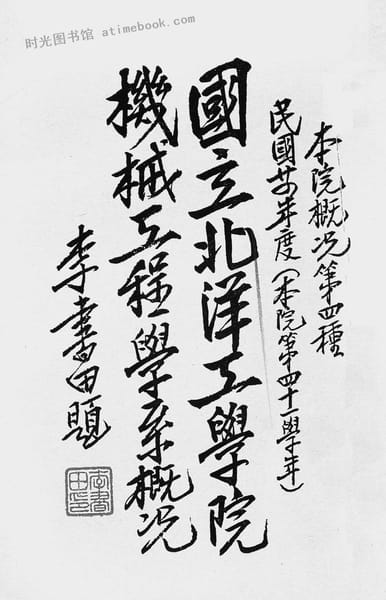 时光图书馆 atimebook.com
本院概况第四種
民國年度(本院第四十一學年)
國立北洋工學院
機械工程學系概况
李書田題
李書田印